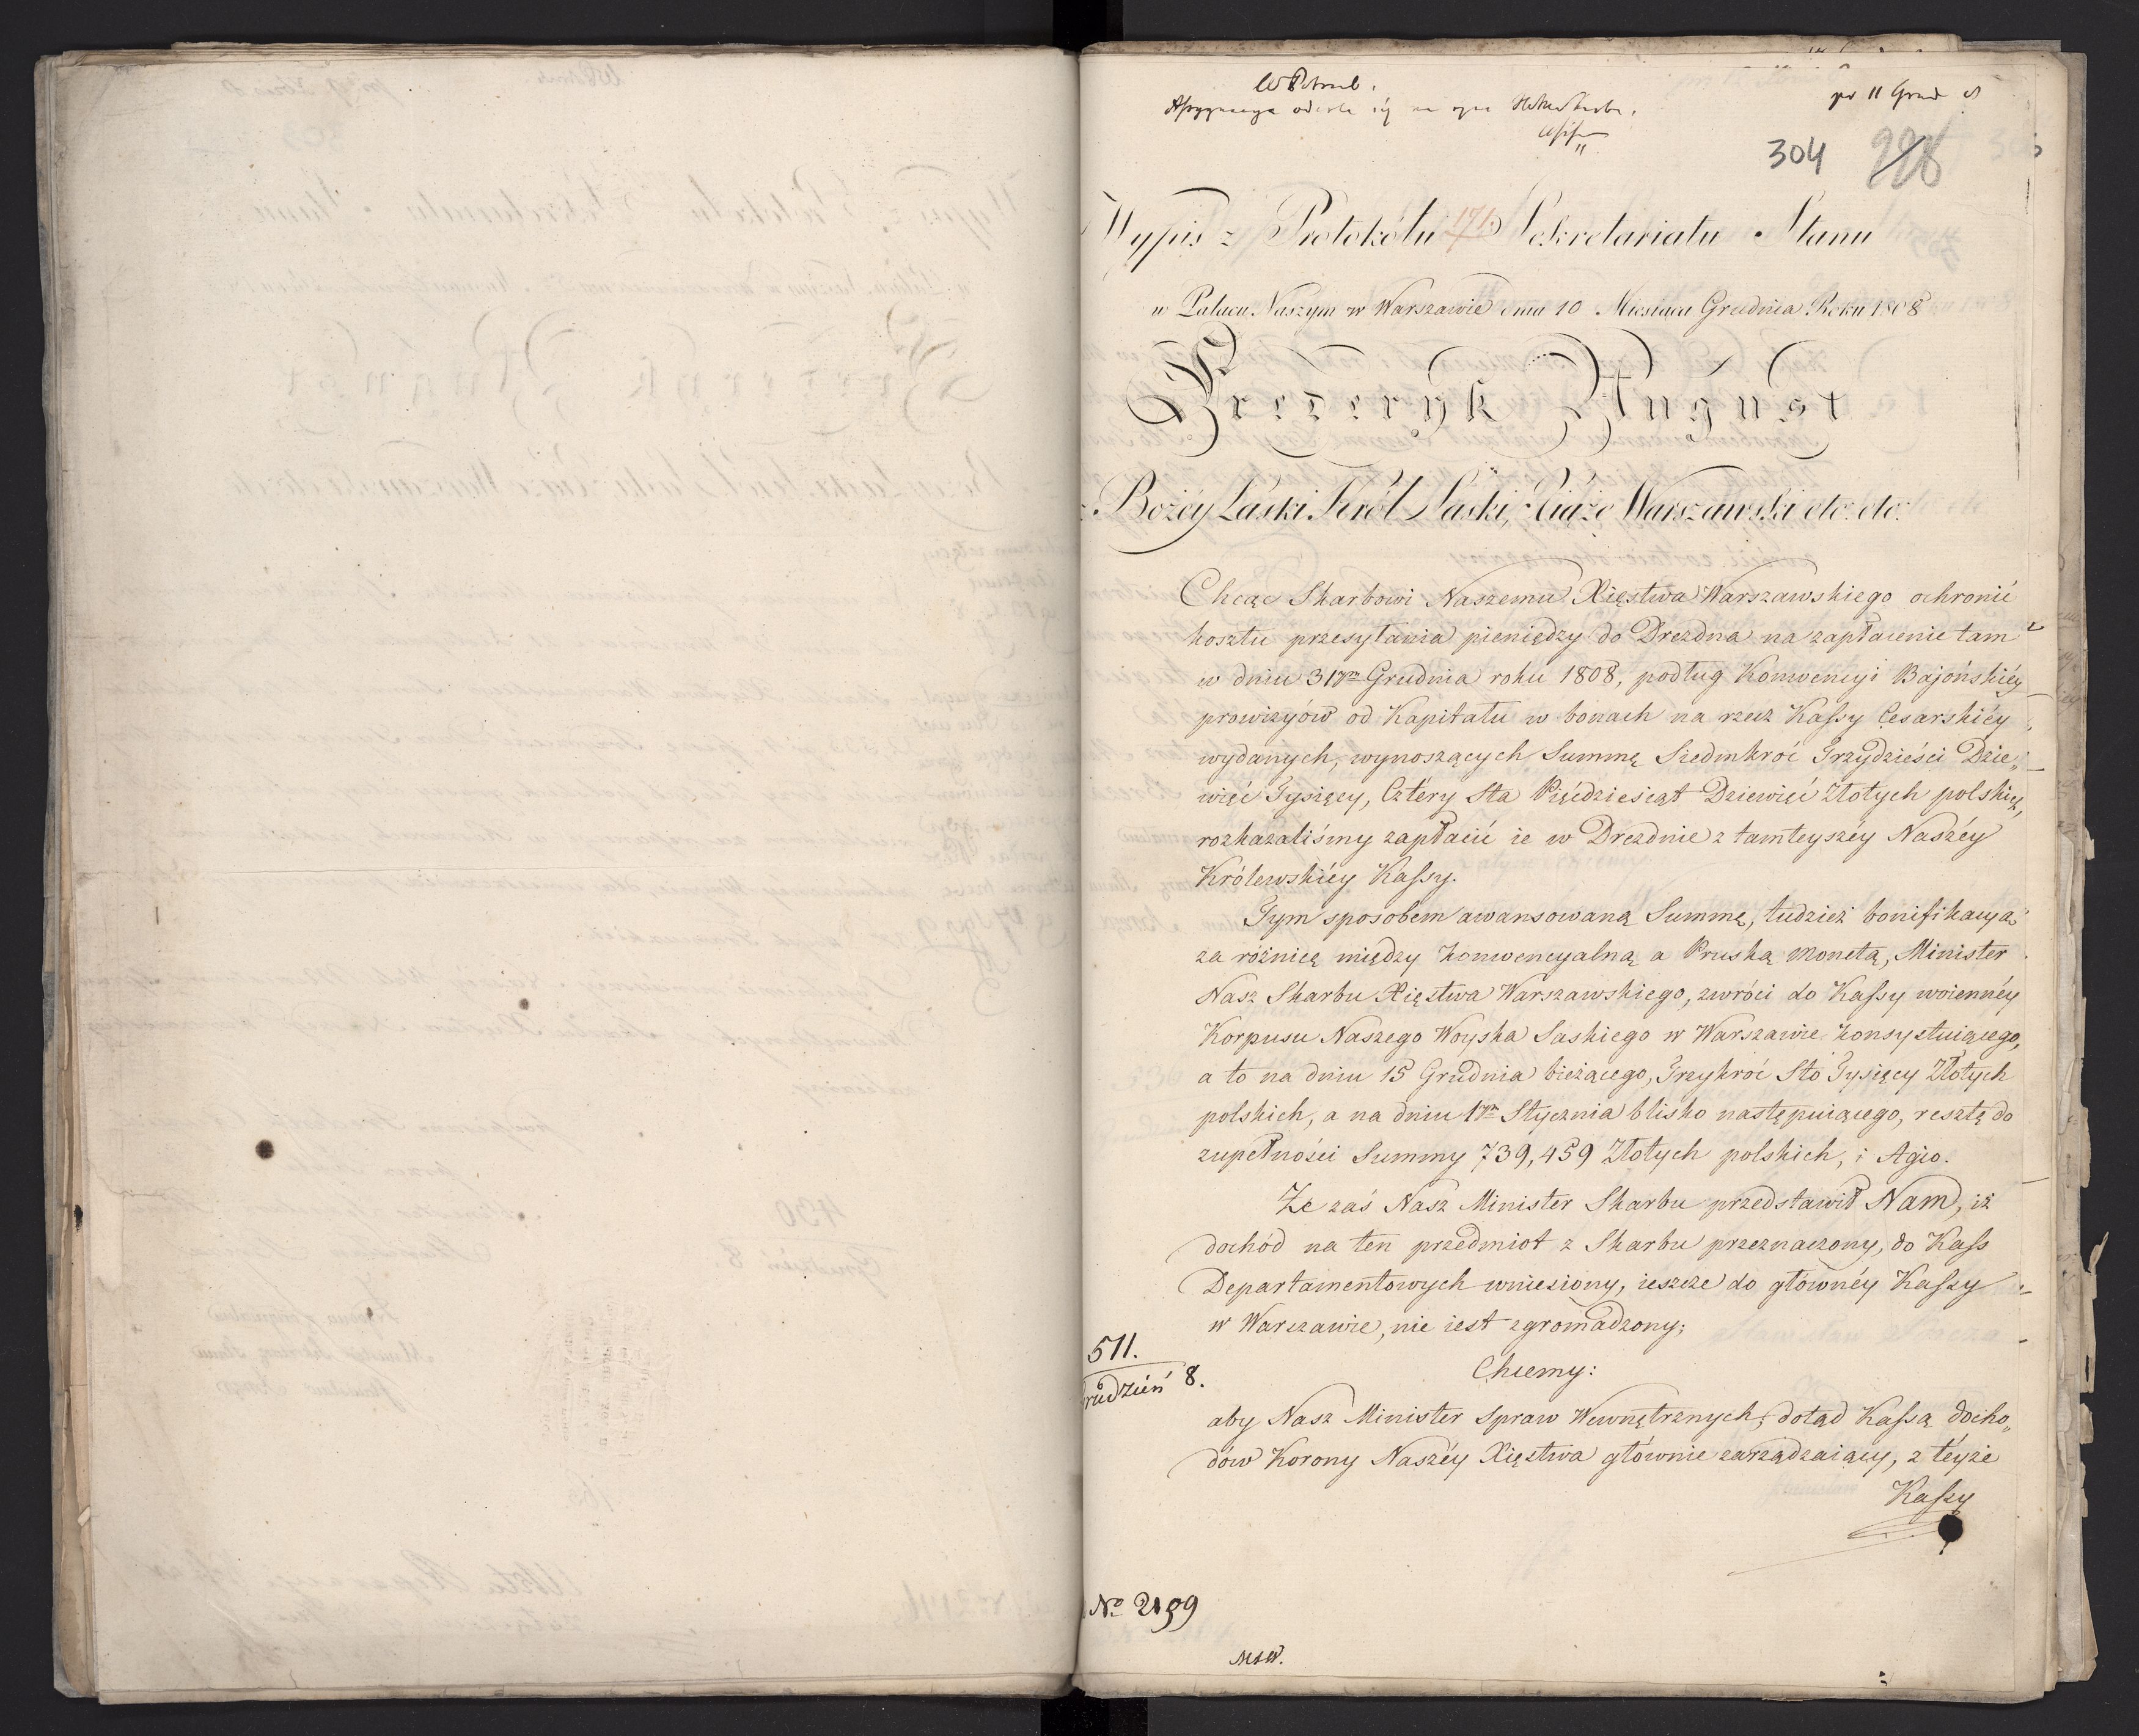 pr 11 Grud
304 228
Wypis z Protokółu 171. Sekretariatu Stanu
w Pałacu Naszym w Warszawie dnia 10 Miesiaca Grudnia Roku 1808
Fryderyk August
z Bożéy Łaski Król Saski, Xiąże Warszawski etc: etc:
Chcąc Skarbowi Naszemu Xięstwa Warszawskiego ochronić
kosztu przesyłania pieniędzy do Drezdna na zapłacenie tam
w dniu 31ym Grudnia roku 1808, podług Konwencyi Bajońskiéy
prowizyów od Kapitału w bonach na rzecz Kassy Cesarskiéy
wydanych, wynoszących Summę Siedmkroć Trzydzieści Dzie„
więć Tysięcy, Cztéry Sta Pięćdziesiąt Dziewięć Złotych polskich,
rozkazaliśmy zapłacić ie w Dreznie z tamteyszéy Naszéy
Królewskiéy Kassy.
Tym sposobem awansowaną Summę, tudzież bonifikacyą
za różnicę między konwencyalną a Pruską monetą, Minister
Nasz Skarbu Xięstwa Warszawskiego, zwróci do Kassy woiennéy
Korpusu Naszego Woyska Saskiego w Warszawie konsystuiącego,
a to na dniu 15 Grudnia bieżącego, Trzykroć Sto Tysięcy Złotych
polskich, a na dniu 1ym Stycznia blisko następuiącego, resztę do
zupełności Summy 739,459 Złotych polskich, i Agio.
Że zaś Nasz Minister Skarbu przedstawił Nam, iż
dochód na ten przedmiot z Skarbu przeznaczony, do Kass
Departamentowych wniesiony, ieszcze do głównéy Kassy
w Warszawie, nie iest zgromadzony;
511.
rudzień 8.
Chcemy:
aby Nasz Minister Spraw Wewnętrznych, dotąd Kassą docho„
dów Korony Naszéy Xięstwa głównie zarządzaiący, z téyże
Kassy
No 2199
MSW.